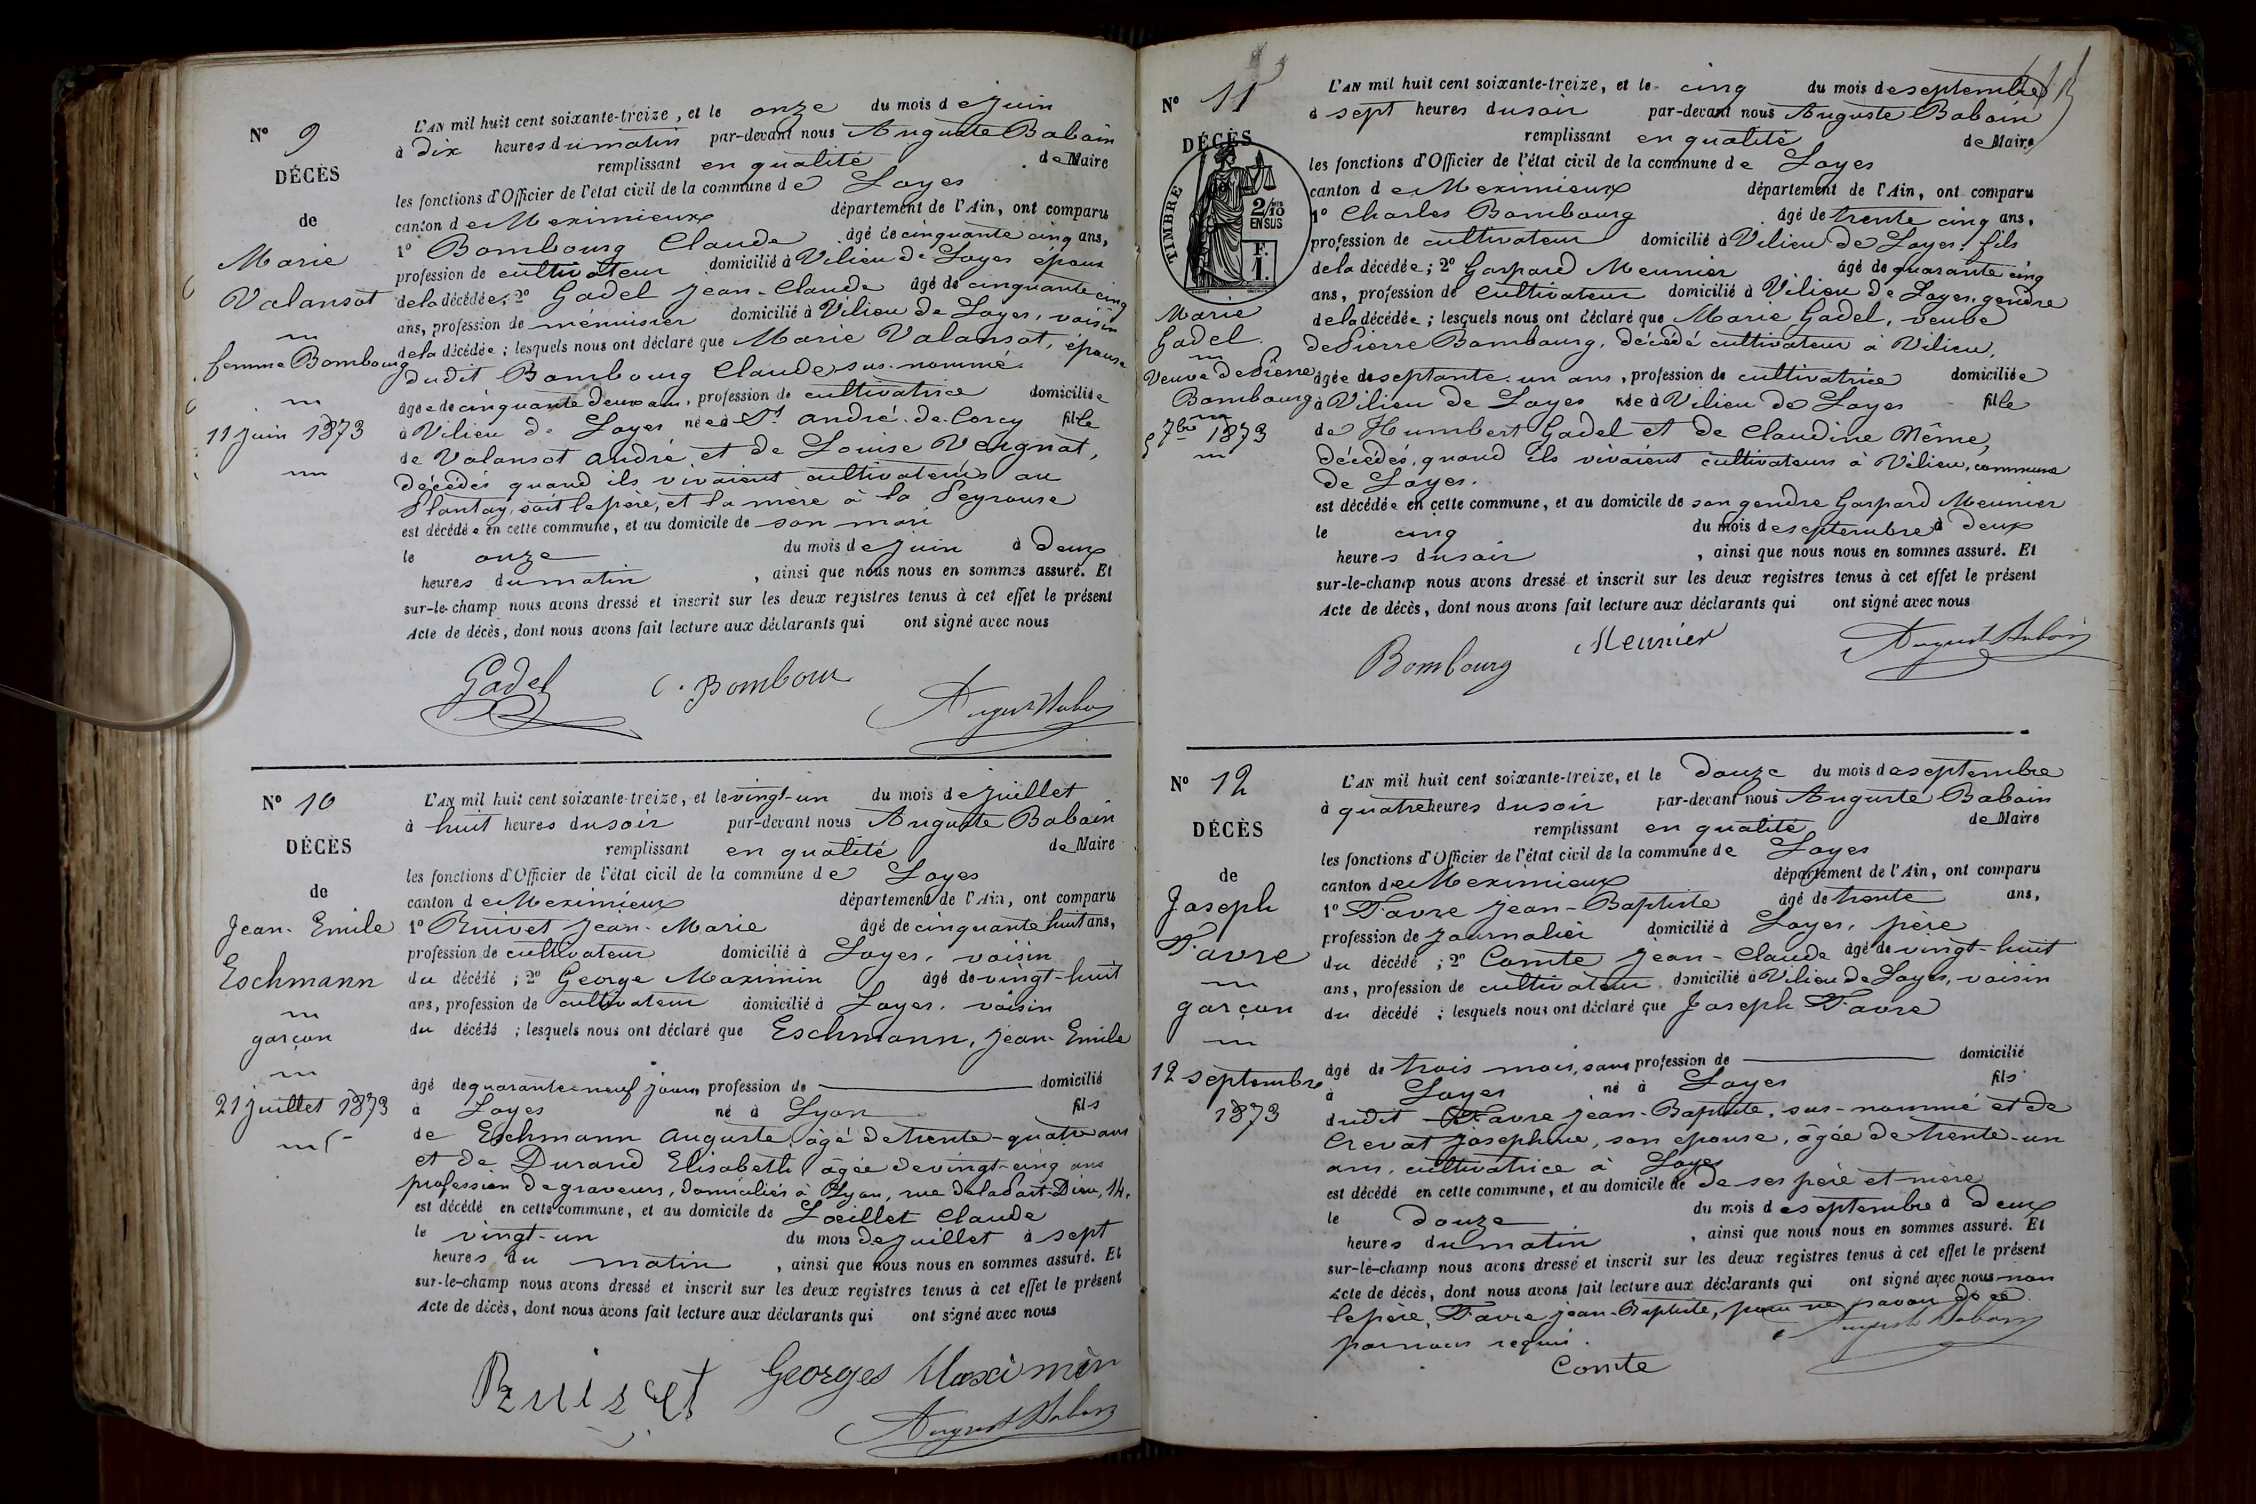 N° 9
DÉCÈS
de
Marie
Valansot
femme Bombourg
11 juin 1873
L'AN mil huit cent soixante-treize, et le onze du mois de juin
à dix heures du matin par-devant nous Auguste Babain
remplissant en qualité de Maire
les fonctions d'Officier de l'état civil de la commune de Loyes
canton de Meximieux département de l'Ain, ont comparu
1° Bombourg Claude âgé de cinquante cinq ans,
profession de cultivateur domicilié à Vilieu de Loyes époux
de la décédée; 2° Gadel Jean-Claude âgé de cinquante cinq
ans, profession de ménuisier domicilié à Vilieu de Loyes, voisin
de la décédée; lesquels nous ont déclaré que Marie Valansot, épouse
dudit Bombourg Claude sus-nommé
âgée de cinquante deux ans, profession de cultivatrice domiciliée
à Vilieu de Loyes née à St André-de-Corcy fille
de Valansot André et de Louise Veugnat,
décédés quand ils vivaient cultivateurs au
Plantay, soit le père, et la mère à la Peyrouse
est décédée en cette commune, et au domicile de son mari
le onze du mois de juin à deux
heures du matin, ainsi que nous nous en sommes assuré. Et
sur-le-champ nous avons dressé et inscrit sur les deux registres tenus à cet effet le présent
Acte de décès, dont nous avons fait lecture aux déclarants qui ont signé avec nous
Gadel C. Bombour August Babain
N° 10
DÉCÈS
de
Jean-Emile
Eschmann
garçon
21 juillet 1873
L'AN mil huit cent soixante-treize, et le vingt-un du mois de juillet
à huit heures du soir par-devant nous Auguste Babain
remplissant en qualité de Maire
les fonctions d'Officier de l'état civil de la commune de Loyes
canton de Meximieux département de l'Ain, ont comparu
1° Ruivet Jean-Marie âgé de cinquante huit ans,
profession de cultivateur domicilié à Loyes, voisin
du décédé; 2° George Maximin âgé de vingt-huit
ans, profession de cultivateur domicilié à Loyes, voisin
du décédé; lesquels nous ont déclaré que Eschmann, Jean-Emile
âgé de quarante neuf jours, profession de domicilié
à Loyes né à Lyon fils
de Eschmann Auguste, âgé de trente-quatre ans
et de Durand Elisabeth âgée de vingt-cinq ans
profession de graveurs, domiciliés à Lyon, rue de la Part-Dieu, 14,
est décédé en cette commune, et au domicile de Loeillet Claude
le vingt-un du mois de juillet à sept
heures du matin, ainsi que nous nous en sommes assuré. Et
sur-le-champ nous avons dressé et inscrit sur les deux registres tenus à cet effet le présent
Acte de décès, dont nous avons fait lecture aux déclarants qui ont signé avec nous
Ruivet Georges Maximin
August Babain
N° 11
DÉCÈS
TIMBRE
2/10 EN SUS
F. 1.
Marie
Gadel
Veuve de Pierre
Bombourg
5 7bre 1873
L'AN mil huit cent soixante-treize, et le cinq du mois de septembre
à sept heures du soir par-devant nous Auguste Babain
remplissant en qualité de Maire
les fonctions d'Officier de l'état civil de la commune de Loyes
canton de Meximieux département de l'Ain, ont comparu
1° Charles Bombourg âgé de trente cinq ans,
profession de cultivateur domicilié à Vilieu de Loyes, fils
de la décédée; 2° Gaspard Meunier âgé de quarante cinq
ans, profession de cultivateur domicilié à Vilieu de Loyes, gendre
de la décédée; lesquels nous ont déclaré que Marie Gadel, veuve
de Pierre Bombourg, décédé cultivateur à Vilieu,
âgée de septante-un ans, profession de cultivatrice domiciliée
à Vilieu de Loyes née à Vilieu de Loyes fille
de Humbert Gadel et de Claudine Même,
décédés, quand ils vivaient cultivateurs à Vilieu, commune
de Loyes.
est décédée en cette commune, et au domicile de son gendre Gaspard Meunier
le cinq du mois de septembre à deux
heures du soir, ainsi que nous nous en sommes assuré. Et
sur-le-champ nous avons dressé et inscrit sur les deux registres tenus à cet effet le présent
Acte de décès, dont nous avons fait lecture aux déclarants qui ont signé avec nous
Bombourg Meunier August Babain
N° 12
DÉCÈS
de
Joseph
Favre
garçon
12 septembre
1873
L'AN mil huit cent soixante-treize, et le douze du mois de septembre
à quatre heures du soir par-devant nous Auguste Babain
remplissant en qualité de Maire
les fonctions d'Officier de l'état civil de la commune de Loyes
canton de Meximieux département de l'Ain, ont comparu
1° Favre Jean-Baptiste âgé de trente ans,
profession de journalier domicilié à Loyes, père
du décédé; 2° Comte Jean-Claude âgé de vingt-huit
ans, profession de cultivateur domicilié à Vilieu de Loyes, voisin
du décédé; lesquels nous ont déclaré que Joseph Favre
âgé de trois mois, sans profession de domicilié
à Loyes né à Loyes fils
dudit Favre Jean-Baptiste, sus-nommé et de
Crevat Joséphine, son épouse, âgée de trente-un
ans, cultivatrice à Loyes
est décédé en cette commune, et au domicile de de ses père et mère
le douze du mois de septembre à deux
heures du matin, ainsi que nous nous en sommes assuré. Et
sur-le-champ nous avons dressé et inscrit sur les deux registres tenus à cet effet le présent
Acte de décès, dont nous avons fait lecture aux déclarants qui ont signé avec nous non
le père, Favre Jean-Baptiste, pour ne savoir de ce
par nous requis.
August Babain
Comte